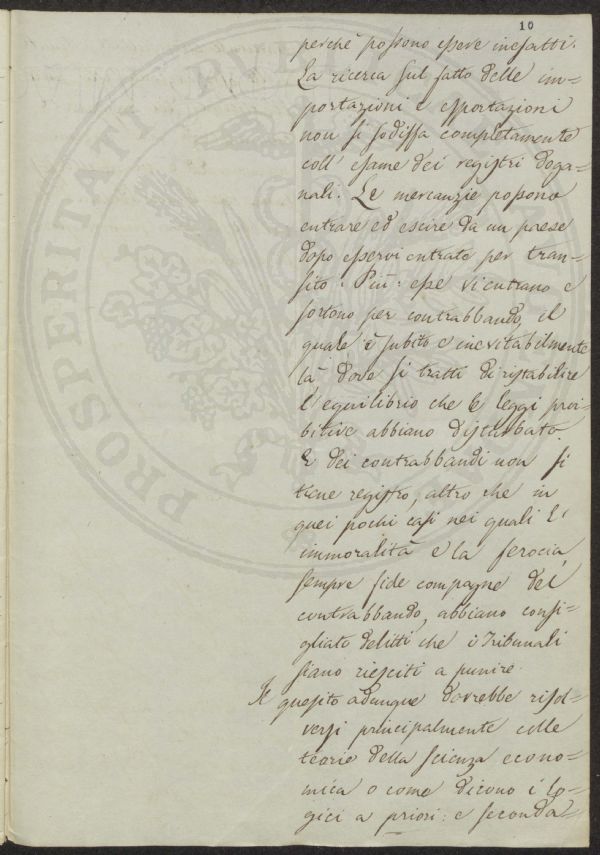 10
perchè possono essere inesatti.
La ricerca sul fatto delle im=
portazioni e esportazioni
non si sodisfa completamente
coll' esame dei registri doga=
nali. Le mercanzie possono
entrare ed escire da un paese
dopo esservi entrate per tran=
sito. Più: esse vi entrano e
sortono per contrabbando, il
quale è subito e inevitabilmente
là dove si tratti di ristabilire
l'equilibrio che le leggi proi=
bitive abbiano disturbato.
E dei contrabbandi non si
tiene registro, altro che in
quei pochi casi nei quali l'
immoralità e la ferocia,
sempre fide compagne del
contrabbando, abbiano consi=
gliato delitti che i Tribunali
siano riesciti a punire.
Il quesito adunque dovrebbe risol=
versi principalmente colle
teorie della scienza econo=
mica o come dicono i lo=
gici a priori: e seconda=
PROSPERITATI PUBLICAE